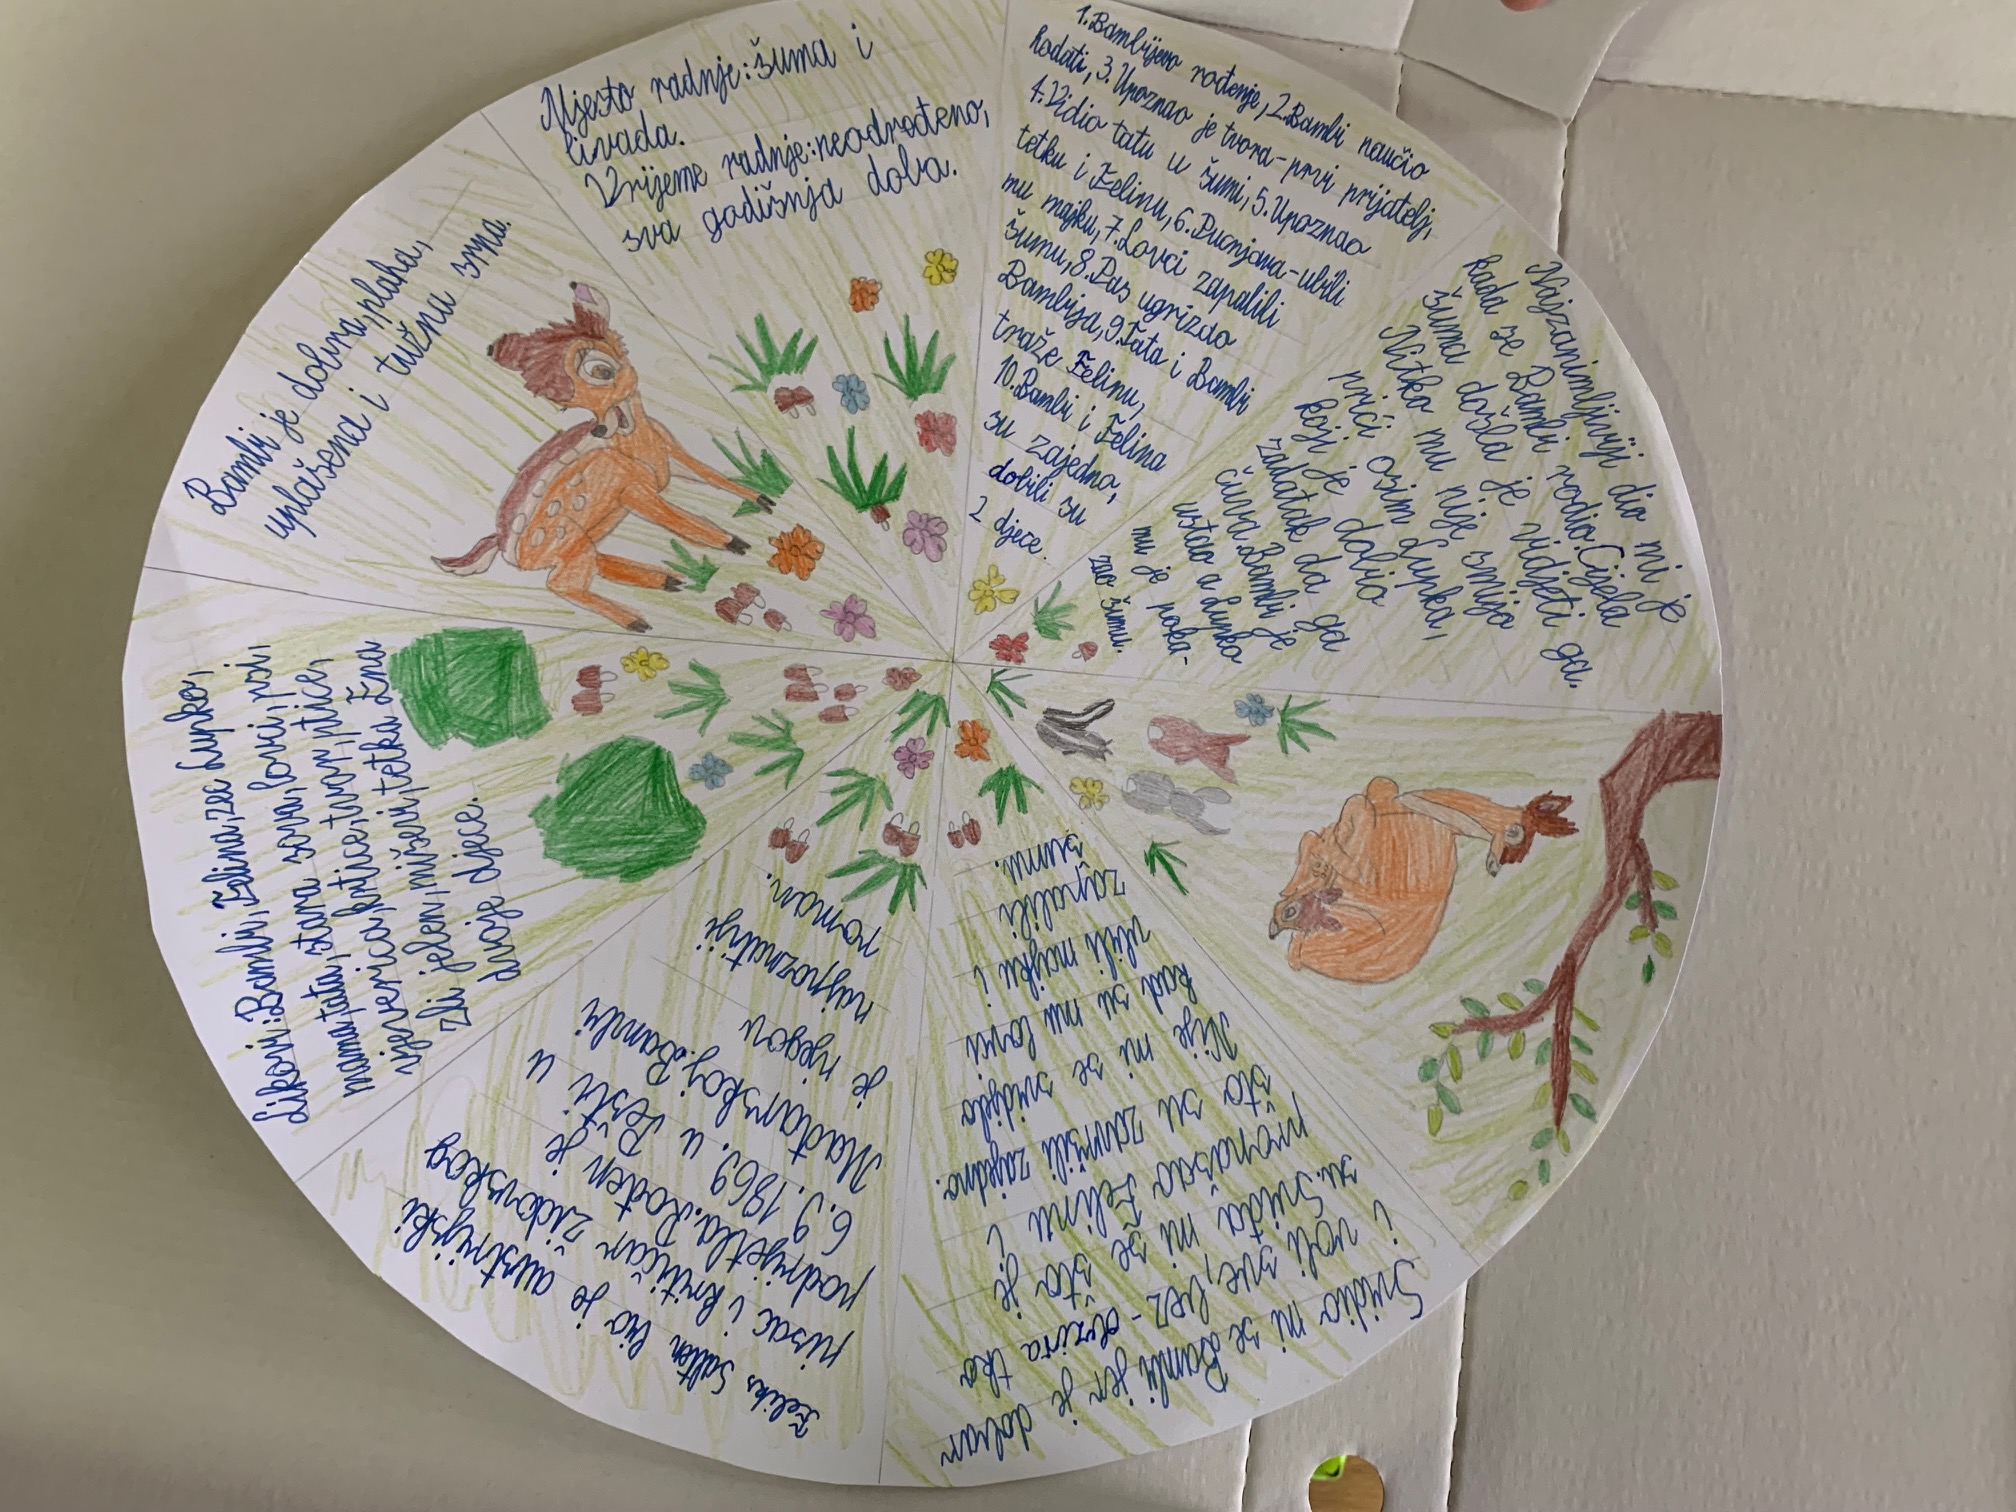 Mjesto radnje: šuma i
livada.
Vrijeme radnje: neodrođeno,
sva godišnja doba.
1. Bambijevo rođenje, 2. Bambi naučio
hodati, 3. Upoznao je tvora - prvi prijatelj,
4. Vidio tatu u šumi, 5. Upoznao
tetku i Felinu, 6. Pucnjava - ubili
mu majku, 7. Lovci zapalili
šumu, 8. Pas ugrizao
Bambija, 9. Tata i Bambi
traže Felinu,
10. Bambi i Felina
su zajedno,
dobili su
2 djece.
Najzanimljiviji dio mi je
kada se Bambi rodio. Cijela
šuma došla je vidjeti ga.
Nitko mu nije smijo
prići osim Lupka,
koji je dobio
zadatak da ga
čuva. Bambi je
ustao a Lupko
mu je poka-
zao šumu.
Svidio mi se Bambi jer je dobar
i voli sve, bez - obzira tko
su. Sviđa mi se što je
pronašao Felinu i
što su završili zajedno.
Nije mi se svidjelo
kad su mu lovci
ubili majku i
zapalili
šumu.
Feliks Salten bio je austrijski
pisac i kritičar židovskog
podrijetla. Rođen je
6.9.1869. u Pešti u
Mađarskoj. Bambi
je njegov
najpoznatiji
roman.
Likovi: Bambi, Felina, zec Lupko,
mama, tata, stara sova, lovci, psi,
vjeverica, krtice, tvor, ptice,
zli jelen, miševi, tetka Ena
dvoje djece.
Bambi je dobra, plaha,
uplašena i tužna srna.